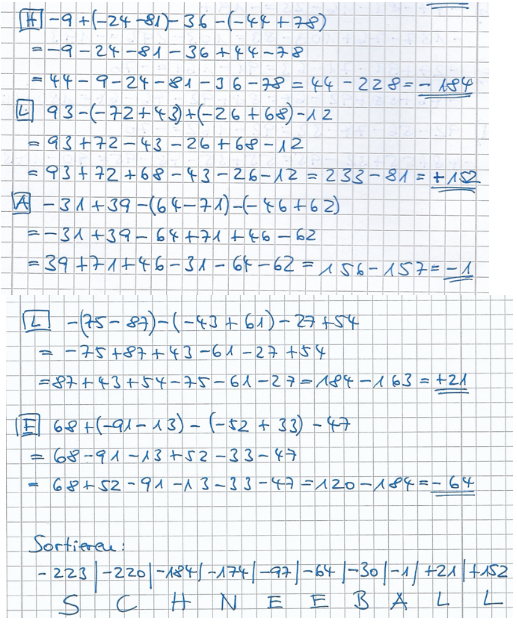 H -9+(-24-81)-36-(-44+78)
=-9-24-81-36+44-78
=44-9-24-81-36-78=44-228=-184
L 93-(-72+43)+(-26+68)-12
=93+72-43-26+68-12
=93+72+68-43-26-12=233-81=+152
A -31+39-(64-71)-(-46+62)
=-31+39-64+71+46-62
=39+71+46-31-64-62=156-157=-1
L -(75-87)-(-43+61)-27+54
=-75+87+43-61-27+54
=87+43+54-75-61-27=184-163=+21
E 68+(-91-13)-(-52+33)-47
=68-91-13+52-33-47
=68+52-91-13-33-47=120-184=-64
Sortieren:
-223|-220|-184|-174|-97|-64|-30|-1|+21|+152
S C H N E E B A L L